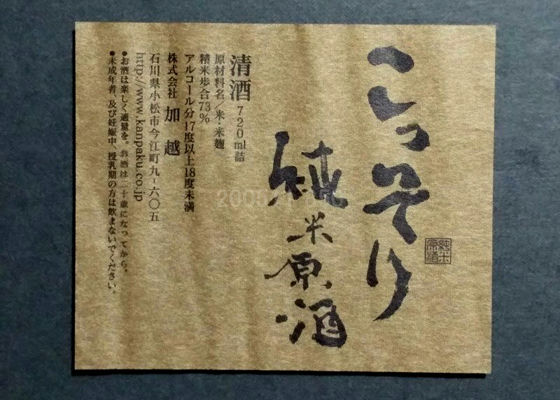 こっそり
純米原酒
純米
原酒
清酒 720ml詰
原材料名/米・米麹
精米歩合73%
アルコール分17度以上18度未満
株式会社 加越
石川県小松市今江町九-六〇五
http://www.kanpaku.co.jp
●お酒は楽しく適量を。お酒は二十歳になってから。
●未成年者、及び妊娠中、授乳期の方は飲まないでください。